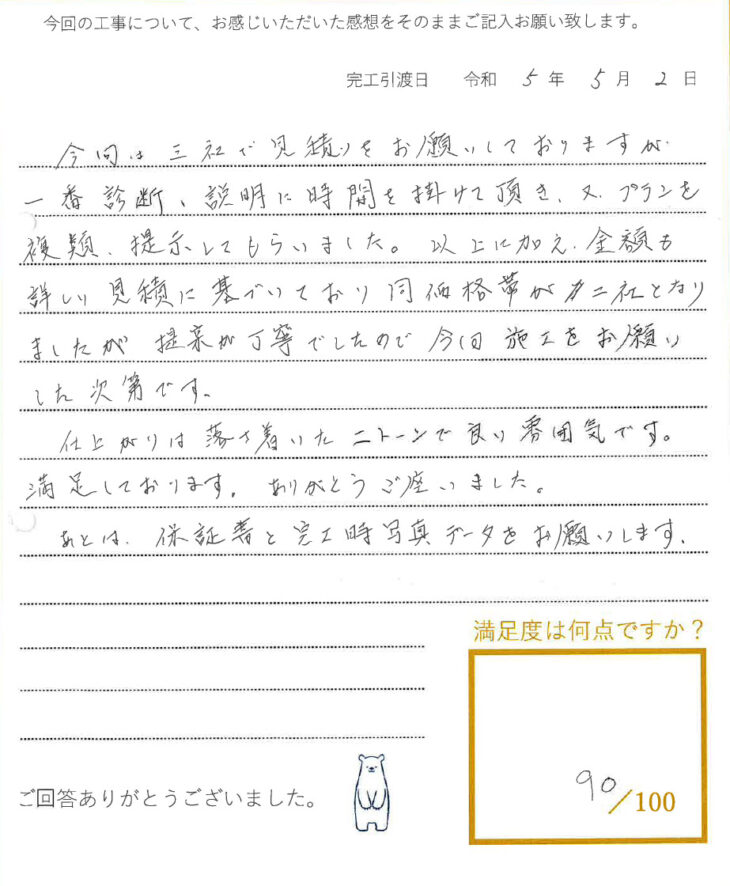 今回の工事について、お感じいただいた感想をそのままご記入お願い致します。
完工引渡日 令和 5 年 5 月 2 日
今回は三社で見積りをお願いしておりますが
一番診断、説明に時間を掛けて頂き、又、プランを
複類、提示してもらいました。以上に加え、金額も
詳しい見積に基づいており同価格帯が二社となり
ましたが提案が丁寧でしたので今回施工をお願い
した次第です。
仕上がりは落ち着いたニトーンで良い雰囲気です。
満足しております。ありがとうご座いました。
あとは、保証書と完工時写真データをお願いします。
満足度は何点ですか？
90/100
ご回答ありがとうございました。